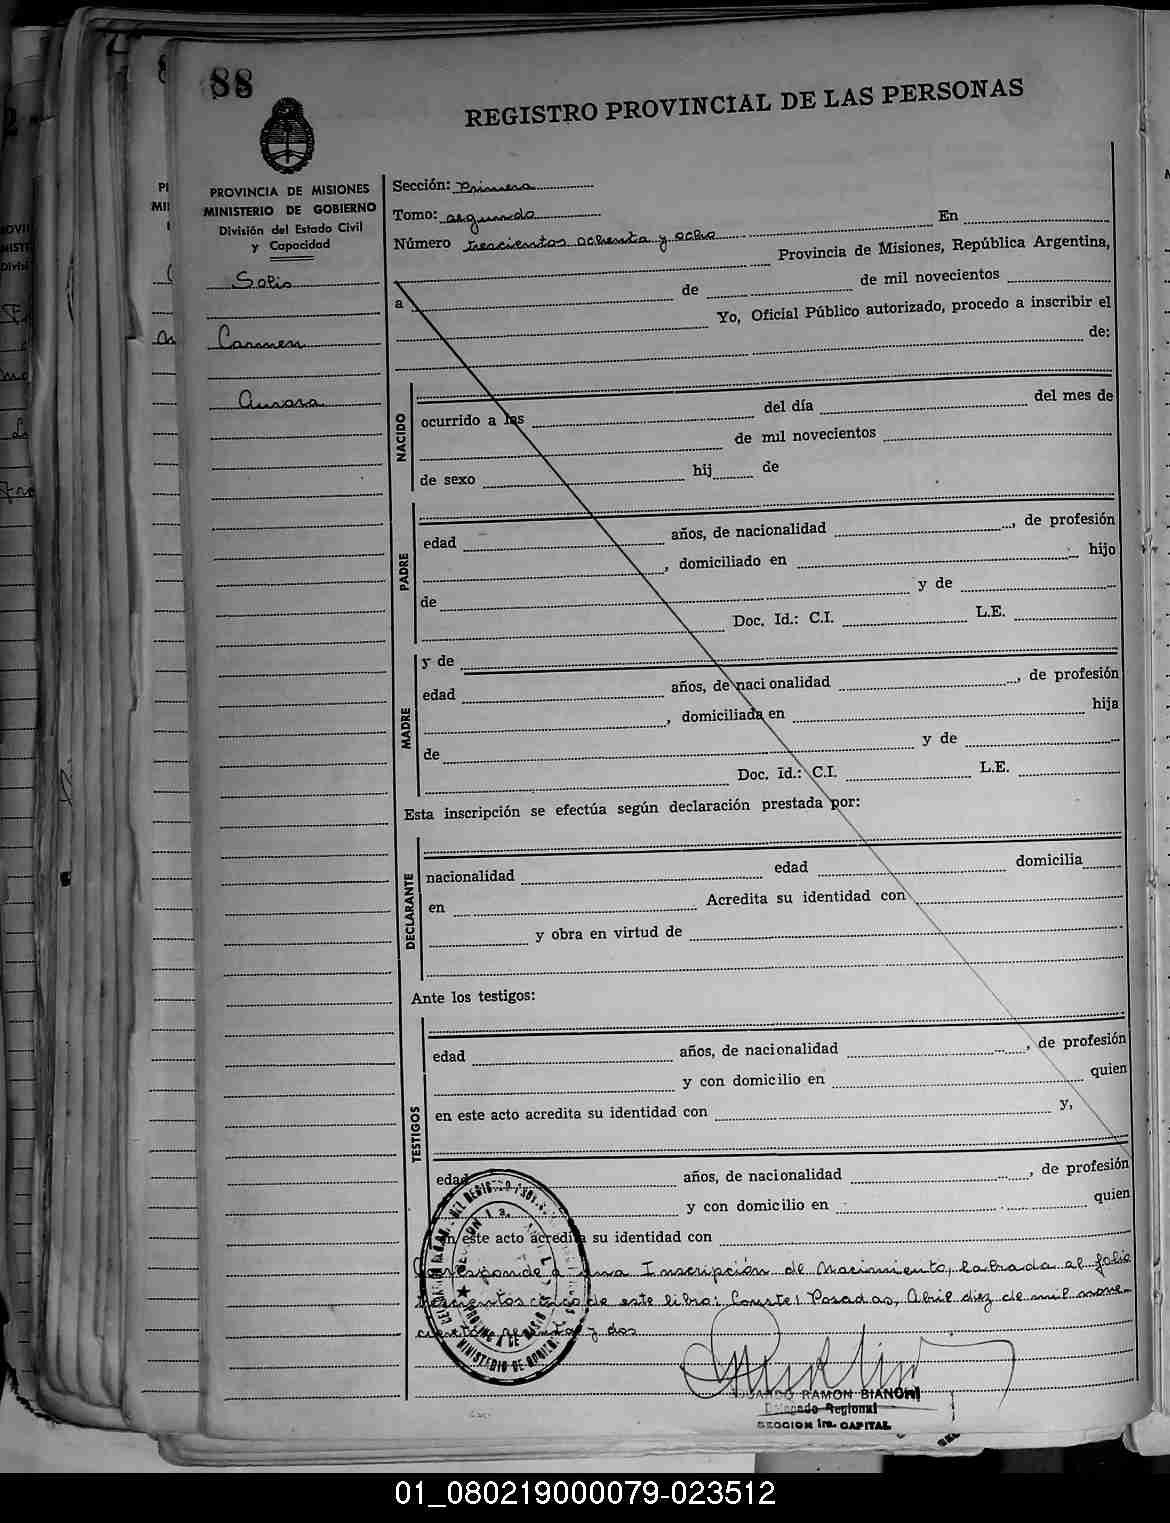 88
REGISTRO PROVINCIAL DE LAS PERSONAS
PROVINCIA DE MISIONES
MINISTERIO DE GOBIERNO
División del Estado Civil
y Capacidad
Solis
Carmen
Aurora
Sección: Primera
Tomo: segundo
Número trescientos ochenta y ocho En
Provincia de Misiones, República Argentina,
a de de mil novecientos
Yo, Oficial Público autorizado, procedo a inscribir el
de:
NACIDO
ocurrido a las del día del mes de
de mil novecientos
de sexo hij de
PADRE
edad años, de nacionalidad , de profesión
, domiciliado en hijo
de y de
Doc. Id.: C.I. L.E.
MADRE
y de
edad años, de nacionalidad , de profesión
, domiciliada en hija
de y de
Doc. Id.: C.I. L.E.
Esta inscripción se efectúa según declaración prestada por:
DECLARANTE
nacionalidad edad domicilia
en Acredita su identidad con
y obra en virtud de
Ante los testigos:
TESTIGOS
edad años, de nacionalidad , de profesión
y con domicilio en quien
en este acto acredita su identidad con y,
edad años, de nacionalidad , de profesión
y con domicilio en quien
en este acto acredita su identidad con
Corresponde a una Inscripción de Nacimiento, labrada al folio
trescientos cinco de este libro: Conste! Posadas, Abril diez de mil nove-
cientos sesenta y dos
EDUARDO RAMON BIANCHI
Delegado Regional
SECCION 1ra. CAPITAL
01_080219000079-023512